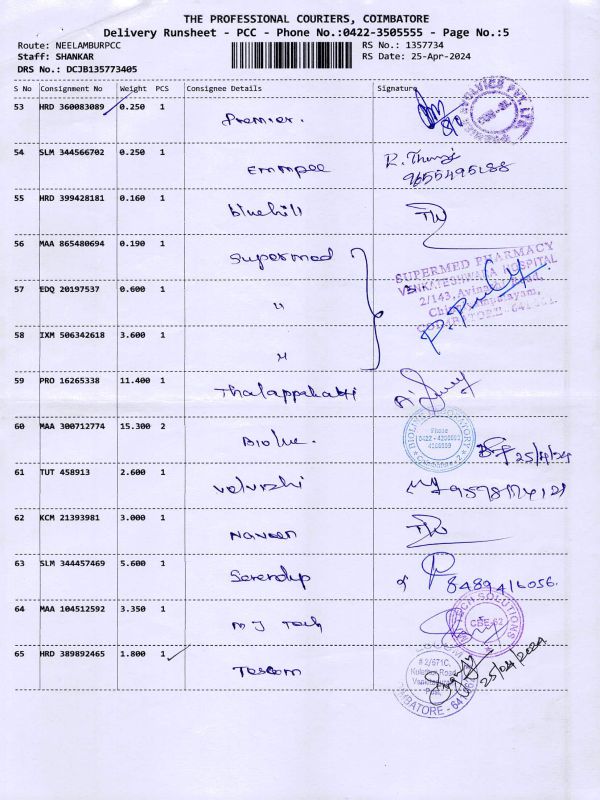 THE PROFESSIONAL COURIERS, COIMBATORE
Delivery Runsheet - PCC - Phone No.:0422-3505555 - Page No.:5
Route: NEELAMBURPCC RS No.: 1357734
Staff: SHANKAR RS Date: 25-Apr-2024
DRS No.: DCJB135773405
S No Consignment No Weight PCS Consignee Details Signature
53 HRD 360083089 0.250 1 Premier.
54 SLM 344566702 0.250 1 Emmpee
55 HRD 399428181 0.160 1 bluehill
56 MAA 865480694 0.190 1 Supermed
SUPERMED PHARMACY
VENKATESHWARA HOSPITAL
57 EDQ 20197537 0.600 1 "
2/143, Avinashi Road,
58 IXM 506342618 3.600 1 "
59 PRO 16265338 11.400 1 Thalappakatti
60 MAA 300712774 15.300 2
Phone
25/4/24
61 TUT 458913 2.600 1
62 KCM 21393981 3.000 1 Naveen
63 SLM 344457469 5.600 1 Serendip
64 MAA 104512592 3.350 1 M J Tech
TECH SOLUTIONS
CBE-62
65 HRD 389892465 1.800 1
# 2/671C,
Kulathur Road,
25/04/2024